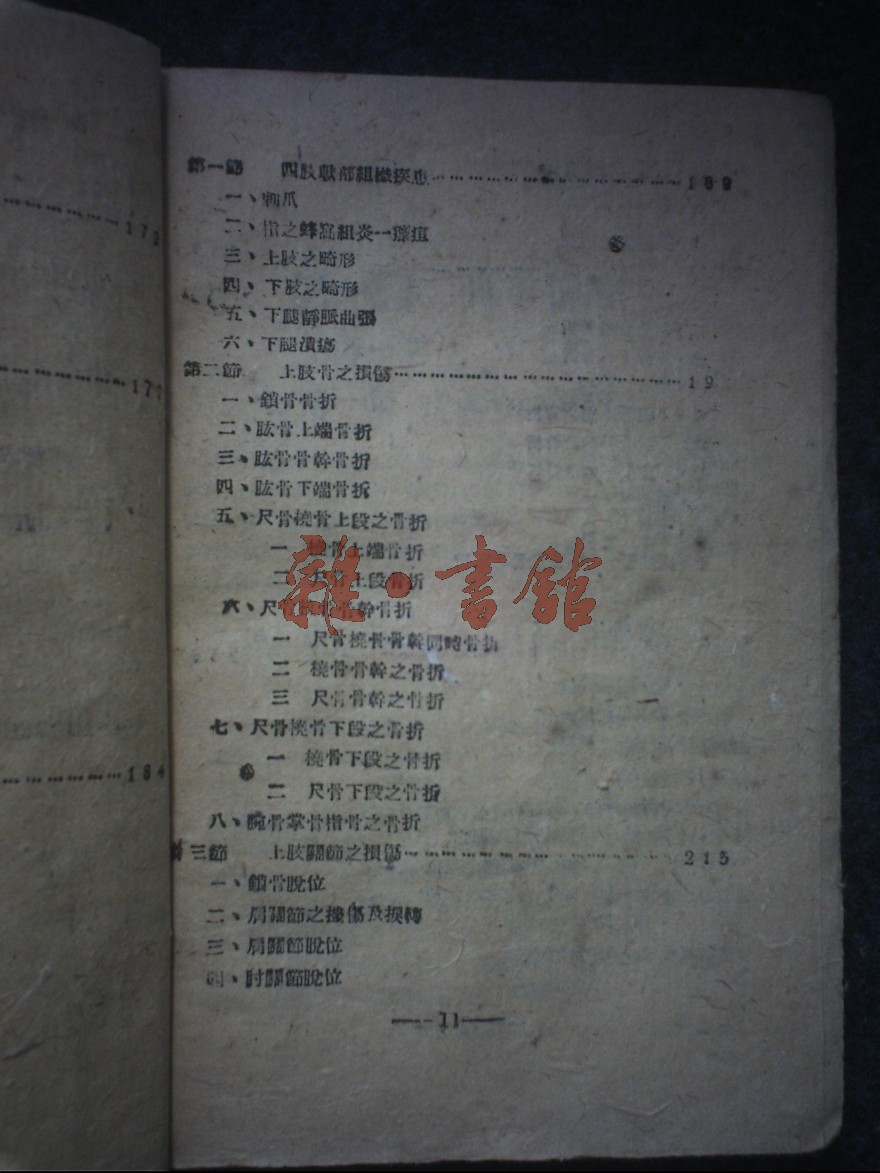 172
177
184
第一節 四肢軟部組織疾患……………………189
一、嵌爪
二、指之蜂窩組炎一瘭疽
三、上肢之畸形
四、下肢之畸形
五、下腿靜脈曲張
六、下腿潰瘍
第二節 上肢骨之損傷……………………19
一、鎖骨骨折
二、肱骨上端骨折
三、肱骨骨幹骨折
四、肱骨下端骨折
五、尺骨橈骨上段之骨折
一 橈骨上端骨折
二 尺骨上段骨折
六、尺骨橈骨骨幹骨折
一 尺骨橈骨骨幹同時骨折
二 橈骨骨幹之骨折
三 尺骨骨幹之骨折
七、尺骨橈骨下段之骨折
一 橈骨下段之骨折
二 尺骨下段之骨折
八、腕骨掌骨指骨之骨折
第三節 上肢關節之損傷……………………215
一、鎖骨脫位
二、肩關節之挫傷及捩轉
三、肩關節脫位
四、肘關節脫位
——11——
雜·書館